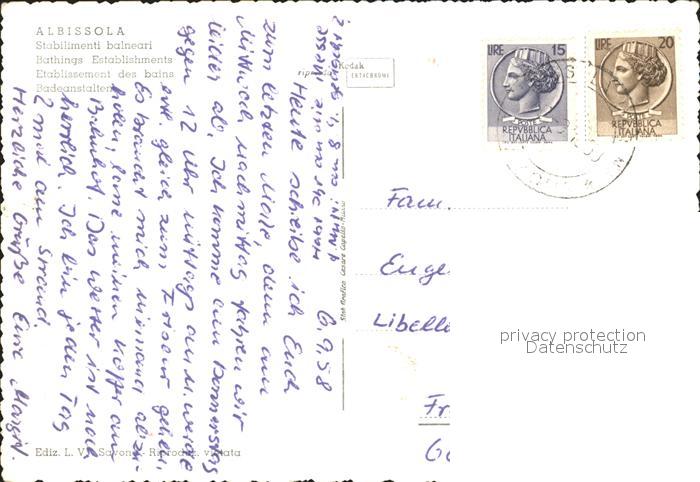 ALBISSOLA
Stabilimenti balneari
Bathings Establishments
Etablissement des bains
Badeanstalten
Kodak
EKTACHROME
LIRE 15
POSTE
REPVBBLICA
ITALIANA
LIRE 20
REPVBBLICA
ITALIANA
6.9.58
Heute schreibe ich Euch
zum letzten Male, denn am
Mittwoch nachmittag fahren wir
leider ab. Ich komme am Donnerstag
gegen 12 Uhr mittags an u. werde
erst gleich zum Friseur gehen.
Es braucht mich niemand abzu-
holen, lasse meinen Koffer am
Bahnhof. Das Wetter ist noch
herrlich. Ich bin jeden Tag
2 mal am Strand.
Herzliche Grüße Eure Margit.
Fam.
Euge
Libelle
Fr
privacy protection
Datenschutz
Ediz. L. V. - Savona - Riproduz. vietata